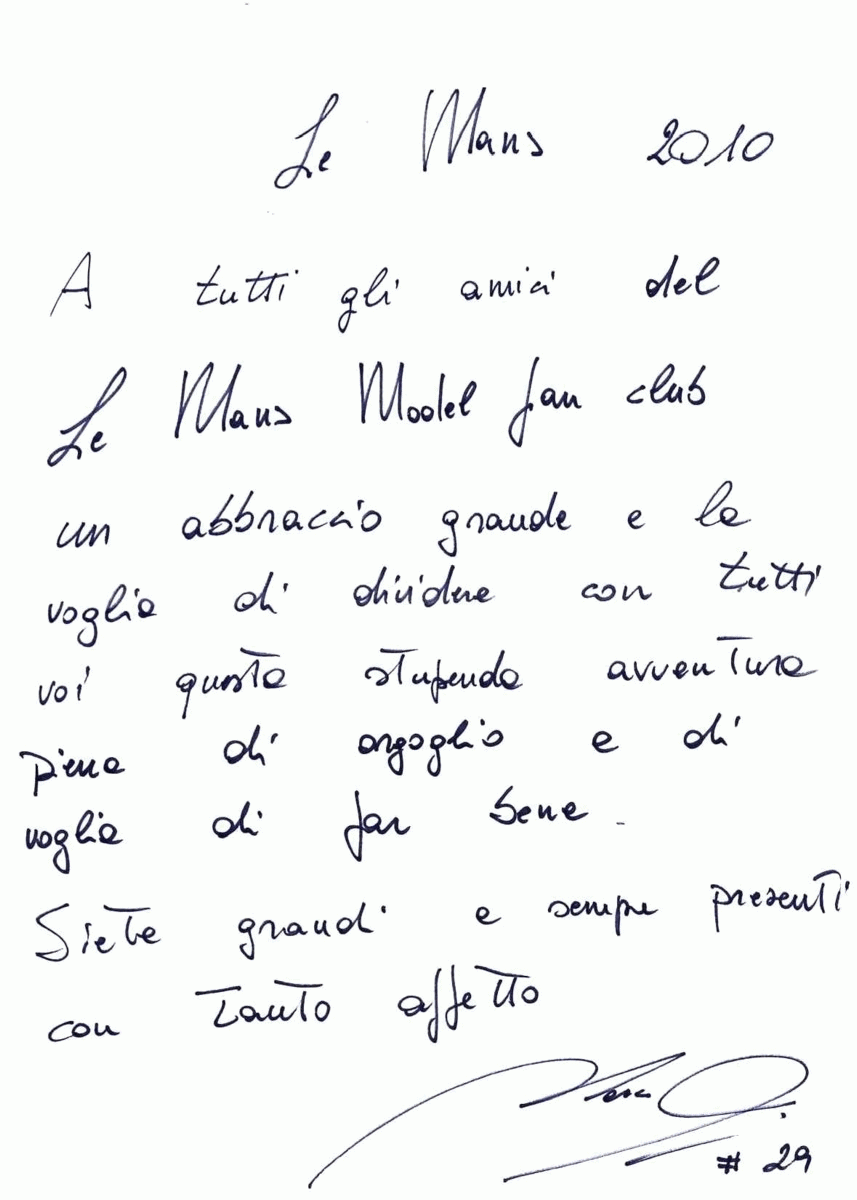 Le Mans 2010
A tutti gli amici del
Le Mans Model fan club
un abbraccio grande e la
voglia di dividere con tutti
voi questa stupenda avventura
piena di orgoglio e di
voglia di far bene.
Siete grandi e sempre presenti
con tanto affetto
# 29